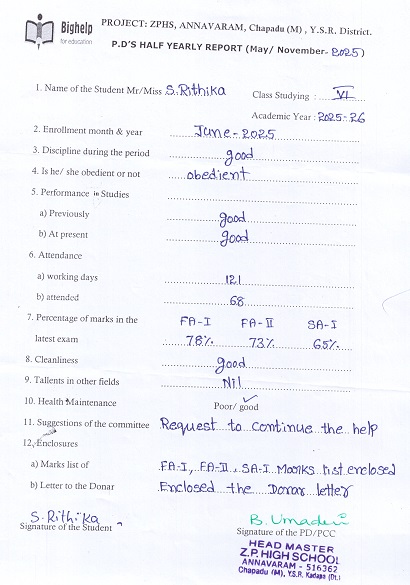 Bighelp
for education
PROJECT: ZPHS, ANNAVARAM, Chapadu (M) , Y.S.R. District.
P.D'S HALF YEARLY REPORT (May/ November- 2025)
1. Name of the Student Mr/Miss S.Rithika Class Studying : VI
Academic Year : 2025-26
2. Enrollment month & year June-2025
3. Discipline during the period good
4. Is he/ she obedient or not obedient
5. Performance in Studies
a) Previously good
b) At present good
6. Attendance
a) working days 121
b) attended 68
7. Percentage of marks in the FA-I FA-II SA-I
latest exam 78% 73% 65%
8. Cleanliness good
9. Tallents in other fields Nil
10. Health Maintenance Poor/ good
11. Suggestions of the committee Request to continue the help
12. Enclosures
a) Marks list of FA-I, FA-II, SA-I Marks list enclosed
b) Letter to the Donar Enclosed the Donar letter
S.Rithika
Signature of the Student
B. Umadevi
Signature of the PD/PCC
HEAD MASTER
Z.P. HIGH SCHOOL
ANNAVARAM - 516362
Chapadu (M), Y.S.R. Kadapa (Dt.)